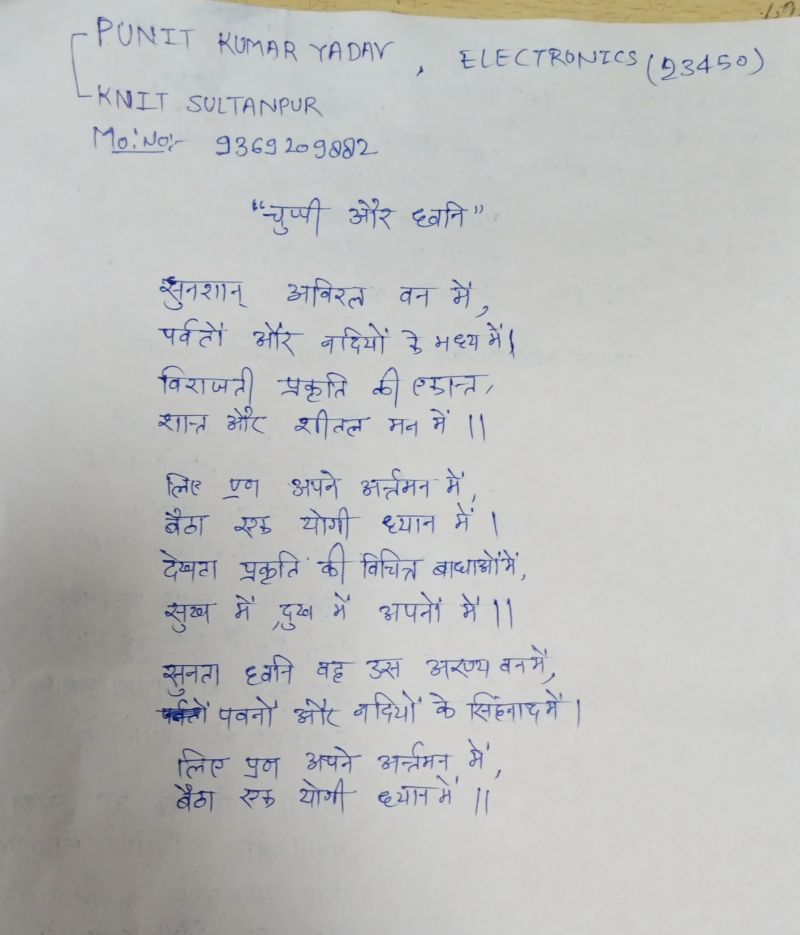 PUNIT KUMAR YADAV, ELECTRONICS (23450)
KNIT SULTANPUR
Mo: No:- 9369209882
"चुप्पी और ध्वनि"
सुनशान् अविरल वन में,
पर्वतों और नदियों के मध्य में।
विराजती प्रकृति की एकान्त,
शान्त और शीतल मन में ।।
लिए प्रण अपने अर्न्तमन में,
बैठा एक योगी ध्यान में ।
देखता प्रकृति की विचित्र बाधाओं में,
सुख में, दुख में अपनों में ।।
सुनता ध्वनि वह उस अरण्य वन में,
पवनों और नदियों के सिंहनाद में ।
लिए प्रण अपने अर्न्तमन में,
बैठा एक योगी ध्यान में ।।